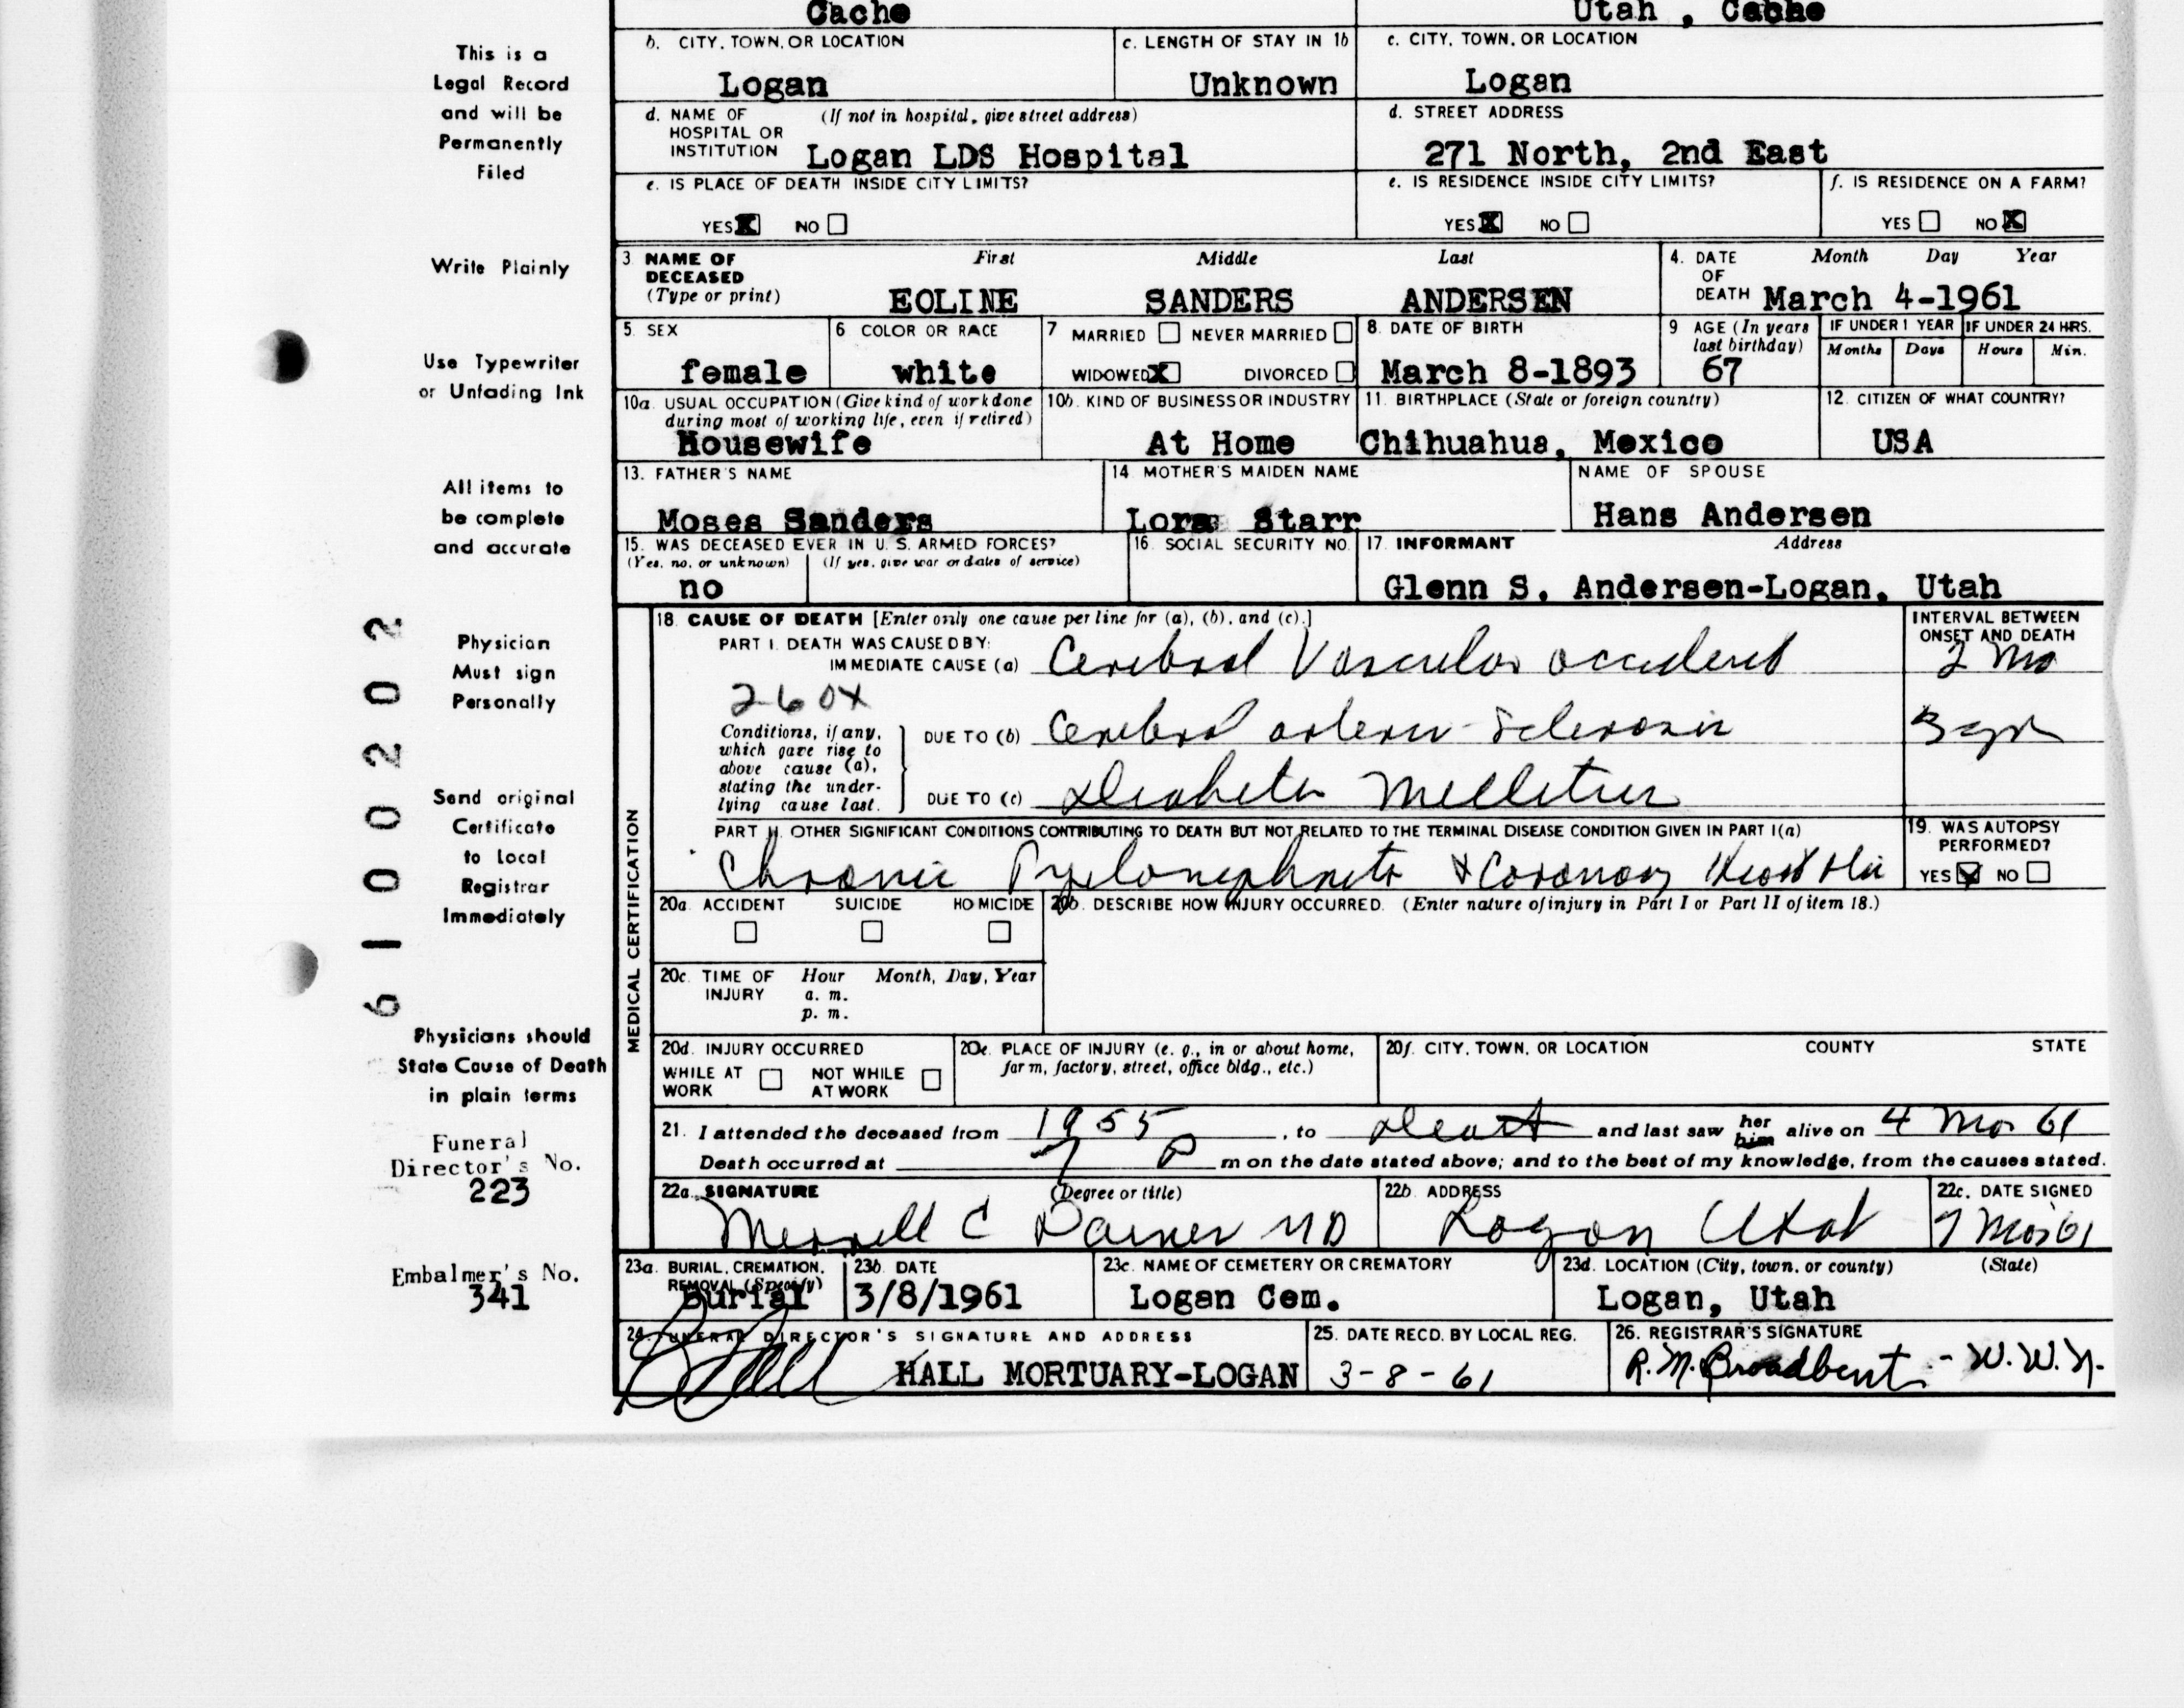 Cache
Utah , Cache
b. CITY, TOWN, OR LOCATION
Logan
c. LENGTH OF STAY IN 1b
Unknown
c. CITY, TOWN, OR LOCATION
Logan
d. NAME OF HOSPITAL OR INSTITUTION (If not in hospital, give street address)
Logan LDS Hospital
d. STREET ADDRESS
271 North, 2nd East
e. IS PLACE OF DEATH INSIDE CITY LIMITS?
YES X NO
e. IS RESIDENCE INSIDE CITY LIMITS?
YES X NO
f. IS RESIDENCE ON A FARM?
YES NO X
3 NAME OF DECEASED (Type or print)
First Middle Last
EOLINE SANDERS ANDERSEN
4. DATE OF DEATH
Month Day Year
March 4-1961
5. SEX
female
6 COLOR OR RACE
white
7 MARRIED NEVER MARRIED
WIDOWED X DIVORCED
8. DATE OF BIRTH
March 8-1893
9 AGE (In years last birthday)
67
IF UNDER 1 YEAR
Months Days
IF UNDER 24 HRS.
Hours Min.
10a. USUAL OCCUPATION (Give kind of work done during most of working life, even if retired)
Housewife
10b. KIND OF BUSINESS OR INDUSTRY
At Home
11. BIRTHPLACE (State or foreign country)
Chihuahua, Mexico
12. CITIZEN OF WHAT COUNTRY?
USA
13. FATHER'S NAME
Moses Sanders
14 MOTHER'S MAIDEN NAME
Lora Starr
NAME OF SPOUSE
Hans Andersen
15. WAS DECEASED EVER IN U. S. ARMED FORCES?
(Yes, no, or unknown) (If yes, give war or dates of service)
no
16. SOCIAL SECURITY NO.
17. INFORMANT Address
Glenn S. Andersen-Logan, Utah
MEDICAL CERTIFICATION
18. CAUSE OF DEATH [Enter only one cause per line for (a), (b), and (c).]
INTERVAL BETWEEN ONSET AND DEATH
PART I. DEATH WAS CAUSED BY:
IMMEDIATE CAUSE (a) Cerebral Vascular accident
2 mo
260X
Conditions, if any, which gave rise to above cause (a), stating the underlying cause last.
DUE TO (b) Cerebral arterio-Sclerosis
DUE TO (c) Diabetes Mellitus
PART II. OTHER SIGNIFICANT CONDITIONS CONTRIBUTING TO DEATH BUT NOT RELATED TO THE TERMINAL DISEASE CONDITION GIVEN IN PART I(a)
Chronic Pyelonephritis & Coronary Heart
19. WAS AUTOPSY PERFORMED?
YES NO
20a. ACCIDENT SUICIDE HOMICIDE
20b. DESCRIBE HOW INJURY OCCURRED. (Enter nature of injury in Part I or Part II of item 18.)
20c. TIME OF INJURY Hour Month, Day, Year
a. m.
p. m.
20d. INJURY OCCURRED
WHILE AT WORK NOT WHILE AT WORK
20e. PLACE OF INJURY (e. g., in or about home, farm, factory, street, office bldg., etc.)
20f. CITY, TOWN, OR LOCATION COUNTY STATE
21. I attended the deceased from 1955, to Death and last saw her him alive on 4 Mar 61
Death occurred at 7 P m on the date stated above; and to the best of my knowledge, from the causes stated.
22a. SIGNATURE (Degree or title)
Merrell C Daines MD
22b. ADDRESS
Logan Utah
22c. DATE SIGNED
7 Mar 61
23a. BURIAL, CREMATION, REMOVAL (Specify)
Burial
23b. DATE
3/8/1961
23c. NAME OF CEMETERY OR CREMATORY
Logan Cem.
23d. LOCATION (City, town, or county) (State)
Logan, Utah
24. FUNERAL DIRECTOR'S SIGNATURE AND ADDRESS
HALL MORTUARY-LOGAN
25. DATE RECD. BY LOCAL REG.
3-8-61
26. REGISTRAR'S SIGNATURE
R.M. Broadbent - W.W.N.
This is a
Legal Record
and will be
Permanently
Filed
Write Plainly
Use Typewriter
or Unfading Ink
All items to
be complete
and accurate
Physician
Must sign
Personally
Send original
Certificate
to Local
Registrar
Immediately
Physicians should
State Cause of Death
in plain terms
Funeral
Director's No.
223
Embalmer's No.
341
61 00202